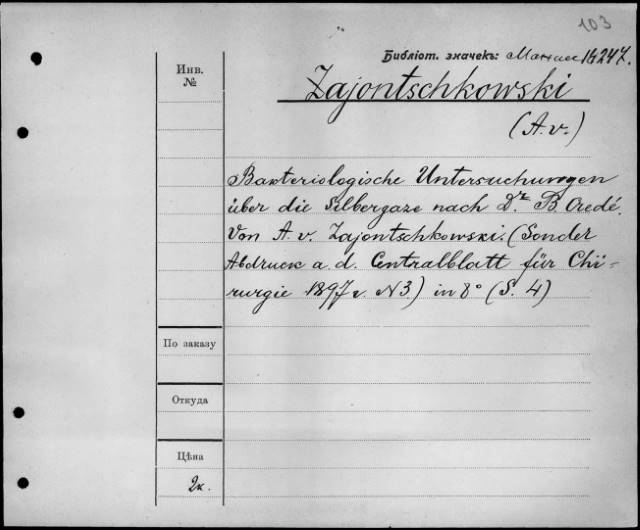 103
Библiот. значекъ: Магнас 16247.
Инв.
№
Zajontschkowski
(A. v.)
Bakteriologische Untersuchungen
über die Silbergaze nach Dr. B. Credé.
Von A. v. Zajontschkowski. (Sonder
Abdruck a. d. Centralblatt für Chi-
rurgie 1897 г. N3.) in 8° (S. 4)
По заказу
Откуда
Цѣна
2к.